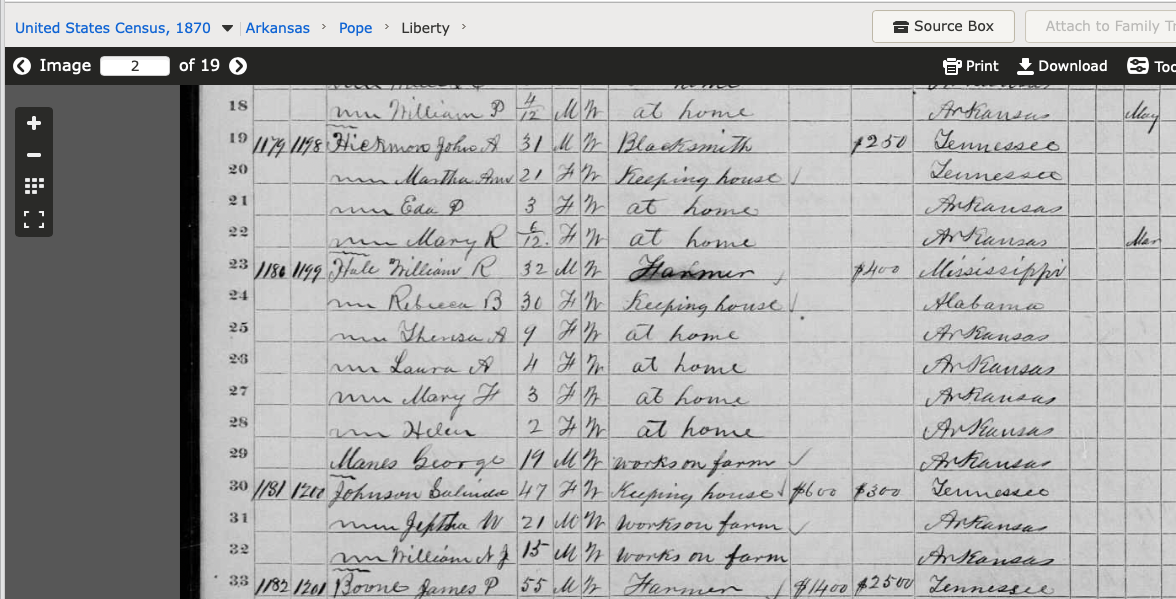 United States Census, 1870 Arkansas › Pope › Liberty ›
Source Box Attach to Family Tr
Image 2 of 19 Print Download Too
18 William P 4/12 M W at home Arkansas May
19 1179 1198 Hickmon John A 31 M W Blacksmith $250 Tennessee
20 Martha Ann 21 F W Keeping house Tennessee
21 Eda P 3 F W at home Arkansas
22 Mary R 6/12 F W at home Arkansas Mar
23 1180 1199 Hale William R 32 M W Farmer $400 Mississippi
24 Rebecca B 30 F W Keeping house Alabama
25 Theresa A 9 F W at home Arkansas
26 Laura A 4 F W at home Arkansas
27 Mary F 3 F W at home Arkansas
28 Helen 2 F W at home Arkansas
29 Manes George 19 M W works on farm Arkansas
30 1181 1200 Johnson 47 F W Keeping house $600 $300 Tennessee
31 Jeptha W 21 M W works on farm Arkansas
32 William N J 15 M W works on farm Arkansas
33 1182 1201 Boone James P 55 M W Farmer $1400 $2500 Tennessee